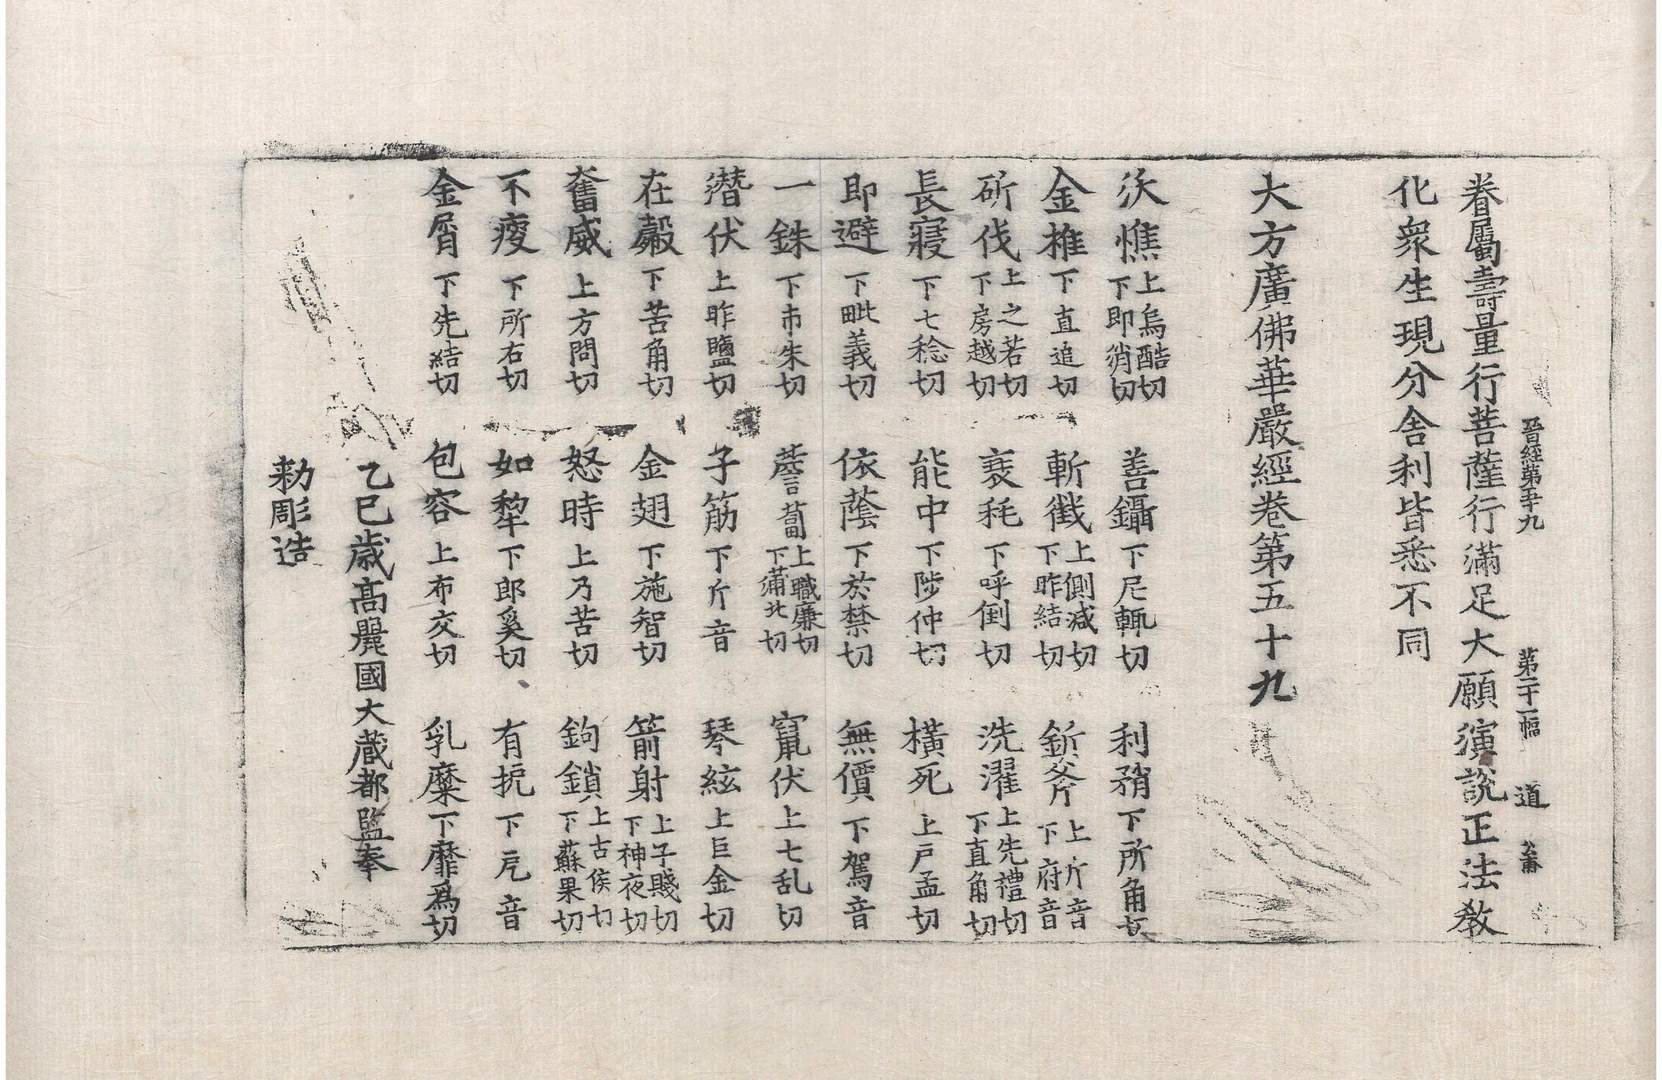 晉經第五十九　第二十一幅　道
眷屬壽量行菩薩行滿足大願演說正法教
化衆生現分舍利皆悉不同
大方廣佛華嚴經卷第五十九
沃燋上烏酷切下即消切　善鑷下尼輒切　利矟下所角切
金椎下直追切　斬㦸上側減切下昨結切　釿斧上斤音下府音
斫伐上之若切下房越切　衰耗下呼倒切　洗濯上先禮切下直角切
長寢下七稔切　能中下陟仲切　橫死上戸孟切
即避下毗義切　依蔭下於禁切　無價下駕音
一銖下市朱切　薝蔔上職廉切下蒲北切　竄伏上七乱切
潛伏上昨鹽切　子筋下斤音　琴絃上巨金切
在㲉下苦角切　金翅下施智切　箭射上子賤切下神夜切
奮威上方問切　怒時上乃苦切　鉤鎖上古侯切下蘇果切
不瘦下所右切　如犂下郎奚切　有扼下厄音
金屑下先結切　包容上布交切　乳糜下靡爲切
乙巳歲高麗國大藏都監奉
勅彫造